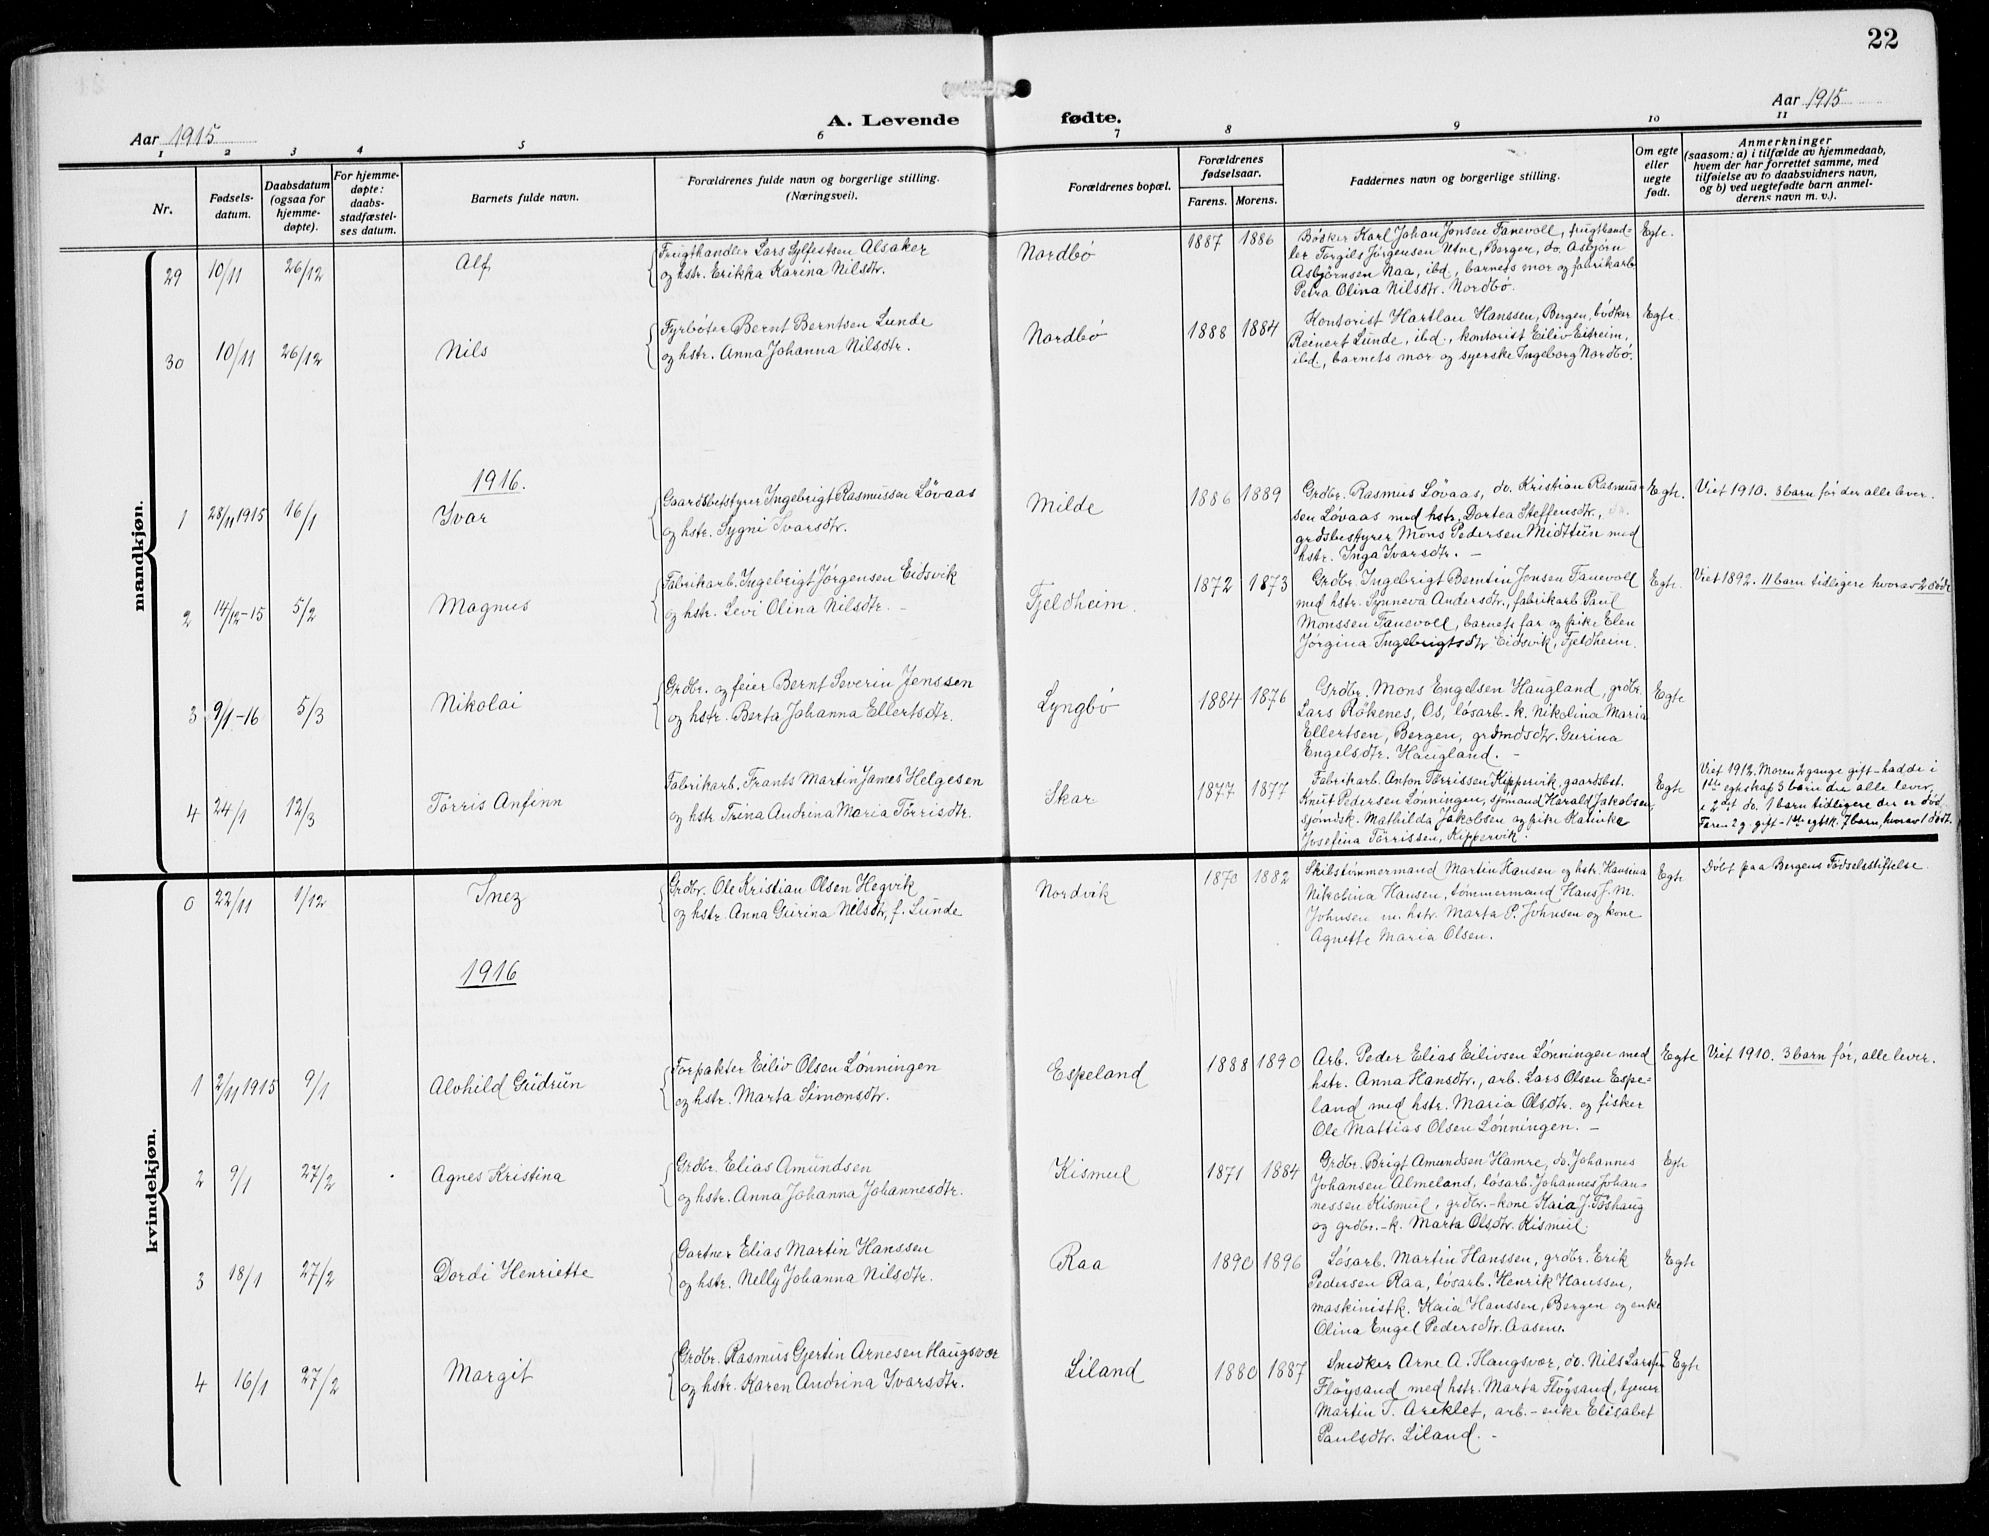 22
Aar 1915
A. Levende fødte.
Aar 1915
1 2 3 4 5 6 7 8 9 10 11
Nr.
Fødsels-
datum.
Daabsdatum
(ogsaa for
hjemme-
døpte).
For hjemme-
døpte:
daabs-
stadfæstel-
ses datum.
Barnets fulde navn.
Forældrenes fulde navn og borgerlige stilling.
(Næringsvei).
Forældrenes bopæl.
Forældrenes
fødselsaar.
Farens. Morens.
Faddernes navn og borgerlige stilling.
Om egte
eller
uegte
født.
Anmerkninger
(saasom: a) i tilfælde av hjemmedaab,
hvem der har forrettet samme, med
tilføielse av to daabsvidners navn,
og b) ved uegtefødte barn anmel-
derens navn m. v.).
mandkjøn.
29 10/11 26/12 Alf
Frugthandler Lars Sylfestsen Alsaker
og hstr. Erikka Karina Nilsdtr.
Nordbø 1887 1886
Bødker Karl Johan Jonsen Fanevoll, frugthand-
ler Torgils Jørgensen Utne, Bergen, do. Asbjørn
Asbjørnsen Naa, ibd, barnets mor og fabrikarb
Petra Olina Nilsdtr. Nordbø.
Egte.
30 10/11 26/12 Nils
Fyrbøter Bernt Berntsen Lunde
og hstr. Anna Johanna Nilsdtr.
Nordbø 1888 1884
Kontorist Hartlau Hanssen, Bergen, bødker
Reinert Lunde, ibd., kontorist Eiliv Eitreim,
ibd., barnets mor og syerske Ingeborg Nordbø.
Egte
1916.
1 28/11 1915 16/1 Ivar
Gaardsbestyrer Ingebrigt Rasmussen Løvaas
og hstr. Sygni Ivarsdtr.
Milde 1886 1889
Grdbr. Rasmus Løvaas, do. Kristian Rasmus-
sen Løvaas med hstr. Dortea Steffensdtr.,
grdsbestyrer Mons Pedersen Midttun med
hstr. Inga Ivarsdtr. -
Egte.
Viet 1910. 3 barn før der alle lever.
2 14/12-15 5/2 Magnus
Fabrikarb. Ingebrigt Jørgensen Eidsvik
og hstr. Levi Olina Nilsdtr. -
Fjeldheim. 1872 1873
Grdbr. Ingebrigt Berntin Jonsen Fanevoll
med hstr. Synneva Andersdtr., fabrikarb. Paul
Monssen Fanevoll, barnets far og pike Elen
Jørgina Ingebrigtsdtr Eidsvik, Fjeldheim.
Egte.
Viet 1892. 11 barn tidligere hvorav 2 døde
3 9/1-16 5/3 Nikolai
Grdbr. og feier Bernt Severin Jenssen
og hstr. Berta Johanna Ellertsdtr.
Lyngbø 1884 1876
Grdbr. Mons Engelsen Haugland, grdbr.
Lars Røkenes, Os, løsarb.-k. Nikolina Maria
Ellertsen, Bergen, grdmdsdtr. Gurina
Engelsdtr. Haugland. -
Egte
4 24/1 12/3 Tørris Anfinn
Fabrikarb. Frants Martin James Helgesen
og hstr Trina Andrina Maria Tørrisdtr.
Skar 1877 1877
Fabrikarb. Anton Tørrissen Kippervik, gaardsbst.
Knut Pedersen Lønningen, sjømand Harald Jakobsen,
sjømdsk. Mathilda Jakobsen og pike Katinka
Josefina Tørrissen, Kippervik.
Egte
Viet 1912. Moren 2 gange gift - hadde i
1ste egtskap 3 barn der alle lever,
i 2det do. 1 barn tidligere der er død.
Faren 2 g. gift - 1ste egtsk. 7 barn, hvorav 1 dødt.
kvindekjøn.
0 22/11 1/12 Inez
Grdbr. Ole Kristian Olsen Hegvik
og hstr. Anna Gurina Nilsdtr, f. Lunde
Nordvik 1870 1882
Skibstømmermand Martin Hansen og hstr. Hansina
Nikolina Hansen, tømmermand Hans J. M.
Johnsen m. hstr. Marta P. Johnsen og kone
Agnette Maria Olsen.
Egte
Døbt paa Bergens Fødselsstiftelse
1916
1 2/11 1915 9/1 Alvhild Gudrun
Forpakter Eiliv Olsen Lønningen
og hstr. Marta Simonsdtr.
Espeland 1888 1890
Arb. Peder Elias Eilivsen Lønningen med
hstr. Anna Hansdtr., arb. Lars Olsen Espe-
land med hstr. Maria Olsdtr. og fisker
Ole Mattias Olsen Lønningen. -
Egte
Viet 1910. 3 barn før, alle lever.
2 9/1 27/2 Agnes Kristina
Grdbr. Elias Amundsen
og hstr. Anna Johanna Johannesdtr.
Kismul 1871 1884
Grdbr. Brigt Amundsen Hamre, do. Johannes
Johansen Almeland, løsarb. Johannes Johan-
nessen Kismul, grdbr.-kone Kaia J. Tøshaug
og grdbr.-k. Marta Olsdtr. Kismul.
Egte
3 18/1 27/2 Dordi Henriette
Gartner Elias Martin Hanssen
og hstr. Nelly Johanna Nilsdtr.
Raa 1890 1896
Løsarb. Martin Hanssen, grdbr. Erik
Pedersen Raa, løsarb. Henrik Hanssen,
maskinistk. Kaia Hanssen, Bergen og enke
Olina Engel Pedersdtr. Aasene.
Egte
4 16/1 27/2 Margit
Grdbr. Rasmus Gjertin Arnesen Haugsvær
og hstr. Karen Andrina Ivarsdtr.
Liland 1880 1887
Snedker Arne A. Haugsvær, do. Nils Larssen
Fløysand med hstr. Marta Fløysand, tjener
Martin T. Areklet, arb.-enke Elisabet
Paulsdtr. Liland. -
Egte